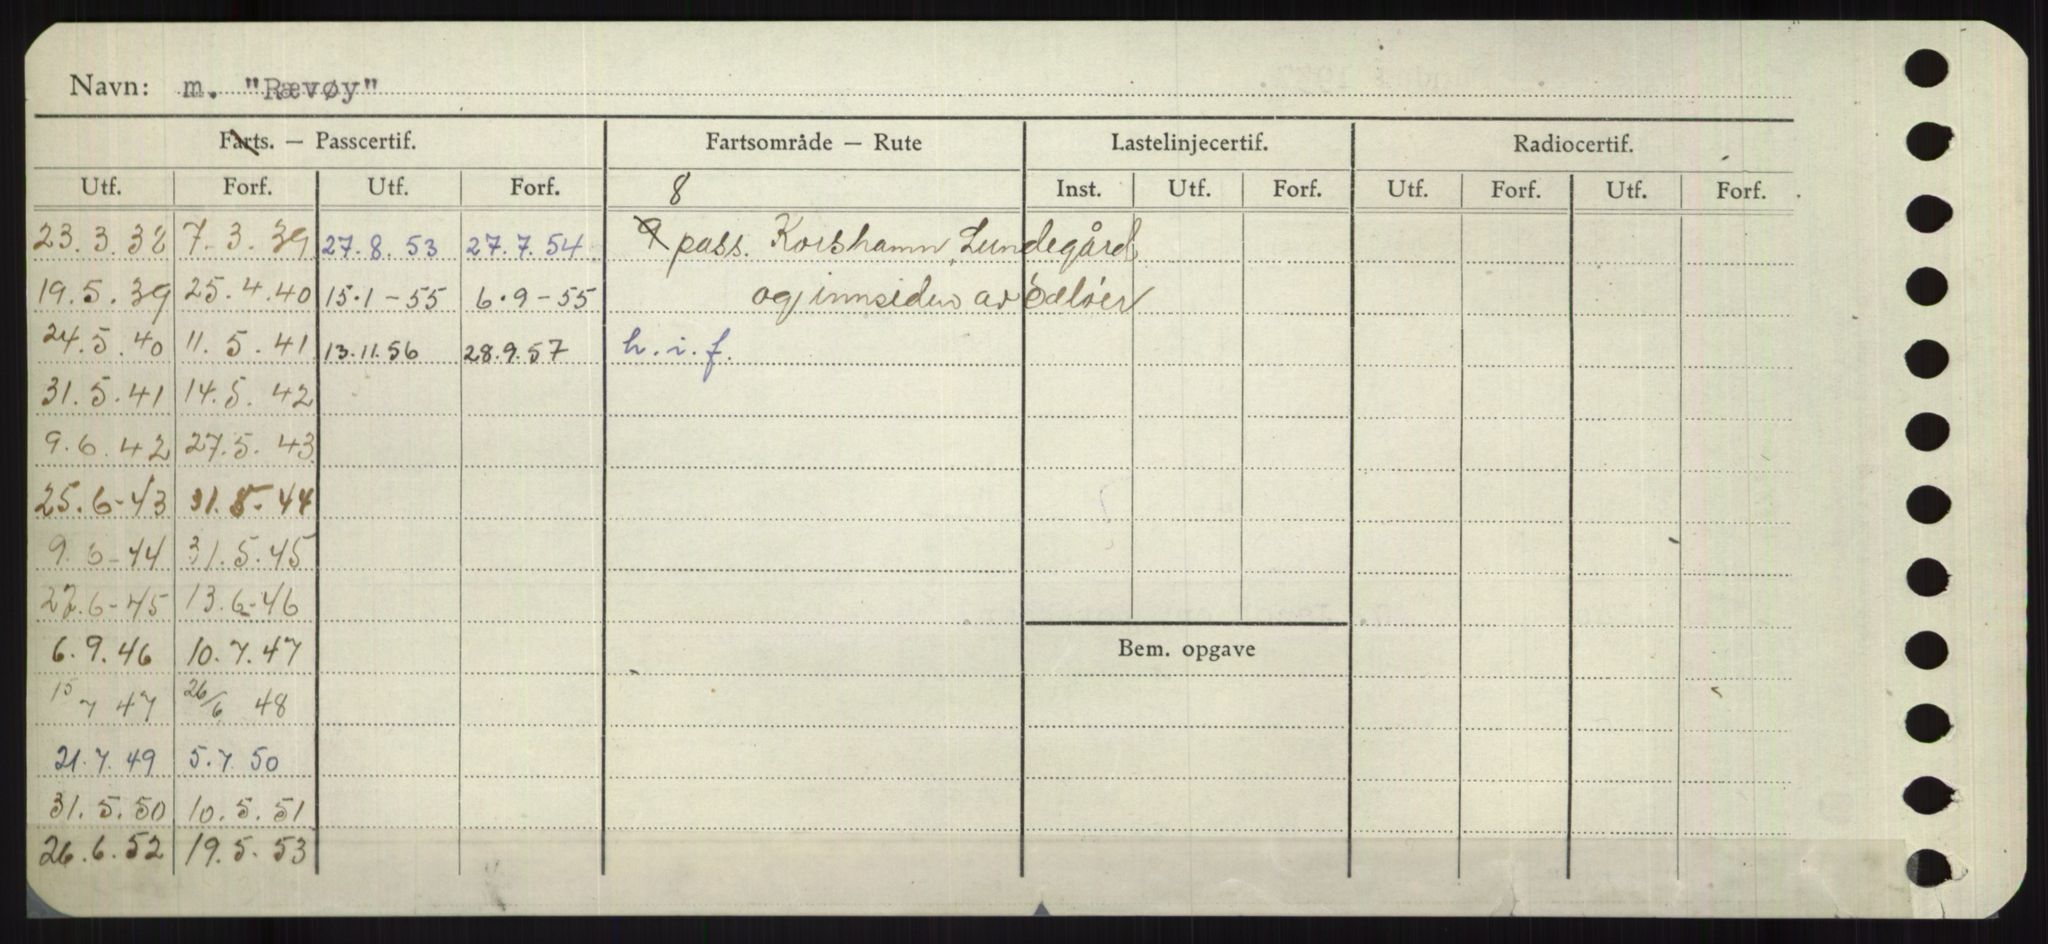 Navn: m. "Rævøy"
Farts. — Passcertif. Fartsområde — Rute Lastelinjecertif. Radiocertif.
Utf. Forf. Utf. Forf. 8 Inst. Utf. Forf. Utf. Forf. Utf. Forf.
23.3.38 7.3.39 27.8.53 27.7.54 9 pass. Korshamn, Lundegård
19.5.39 25.4.40 15.1-55 6.9-55 og innsiden av
24.5.40 11.5.41 13.11.56 28.9.57 h.i.f.
31.5.41 14.5.42
9.6.42 27.5.43
25.6-43 31.5-44
9.6-44 31.5.45
22.6-45 13.6-46
6.9.46 10.7.47
Bem. opgave
15/7 47 26/6 48
21.7.49 5.7.50
31.5.50 10.5.51
26.6.52 19.5.53